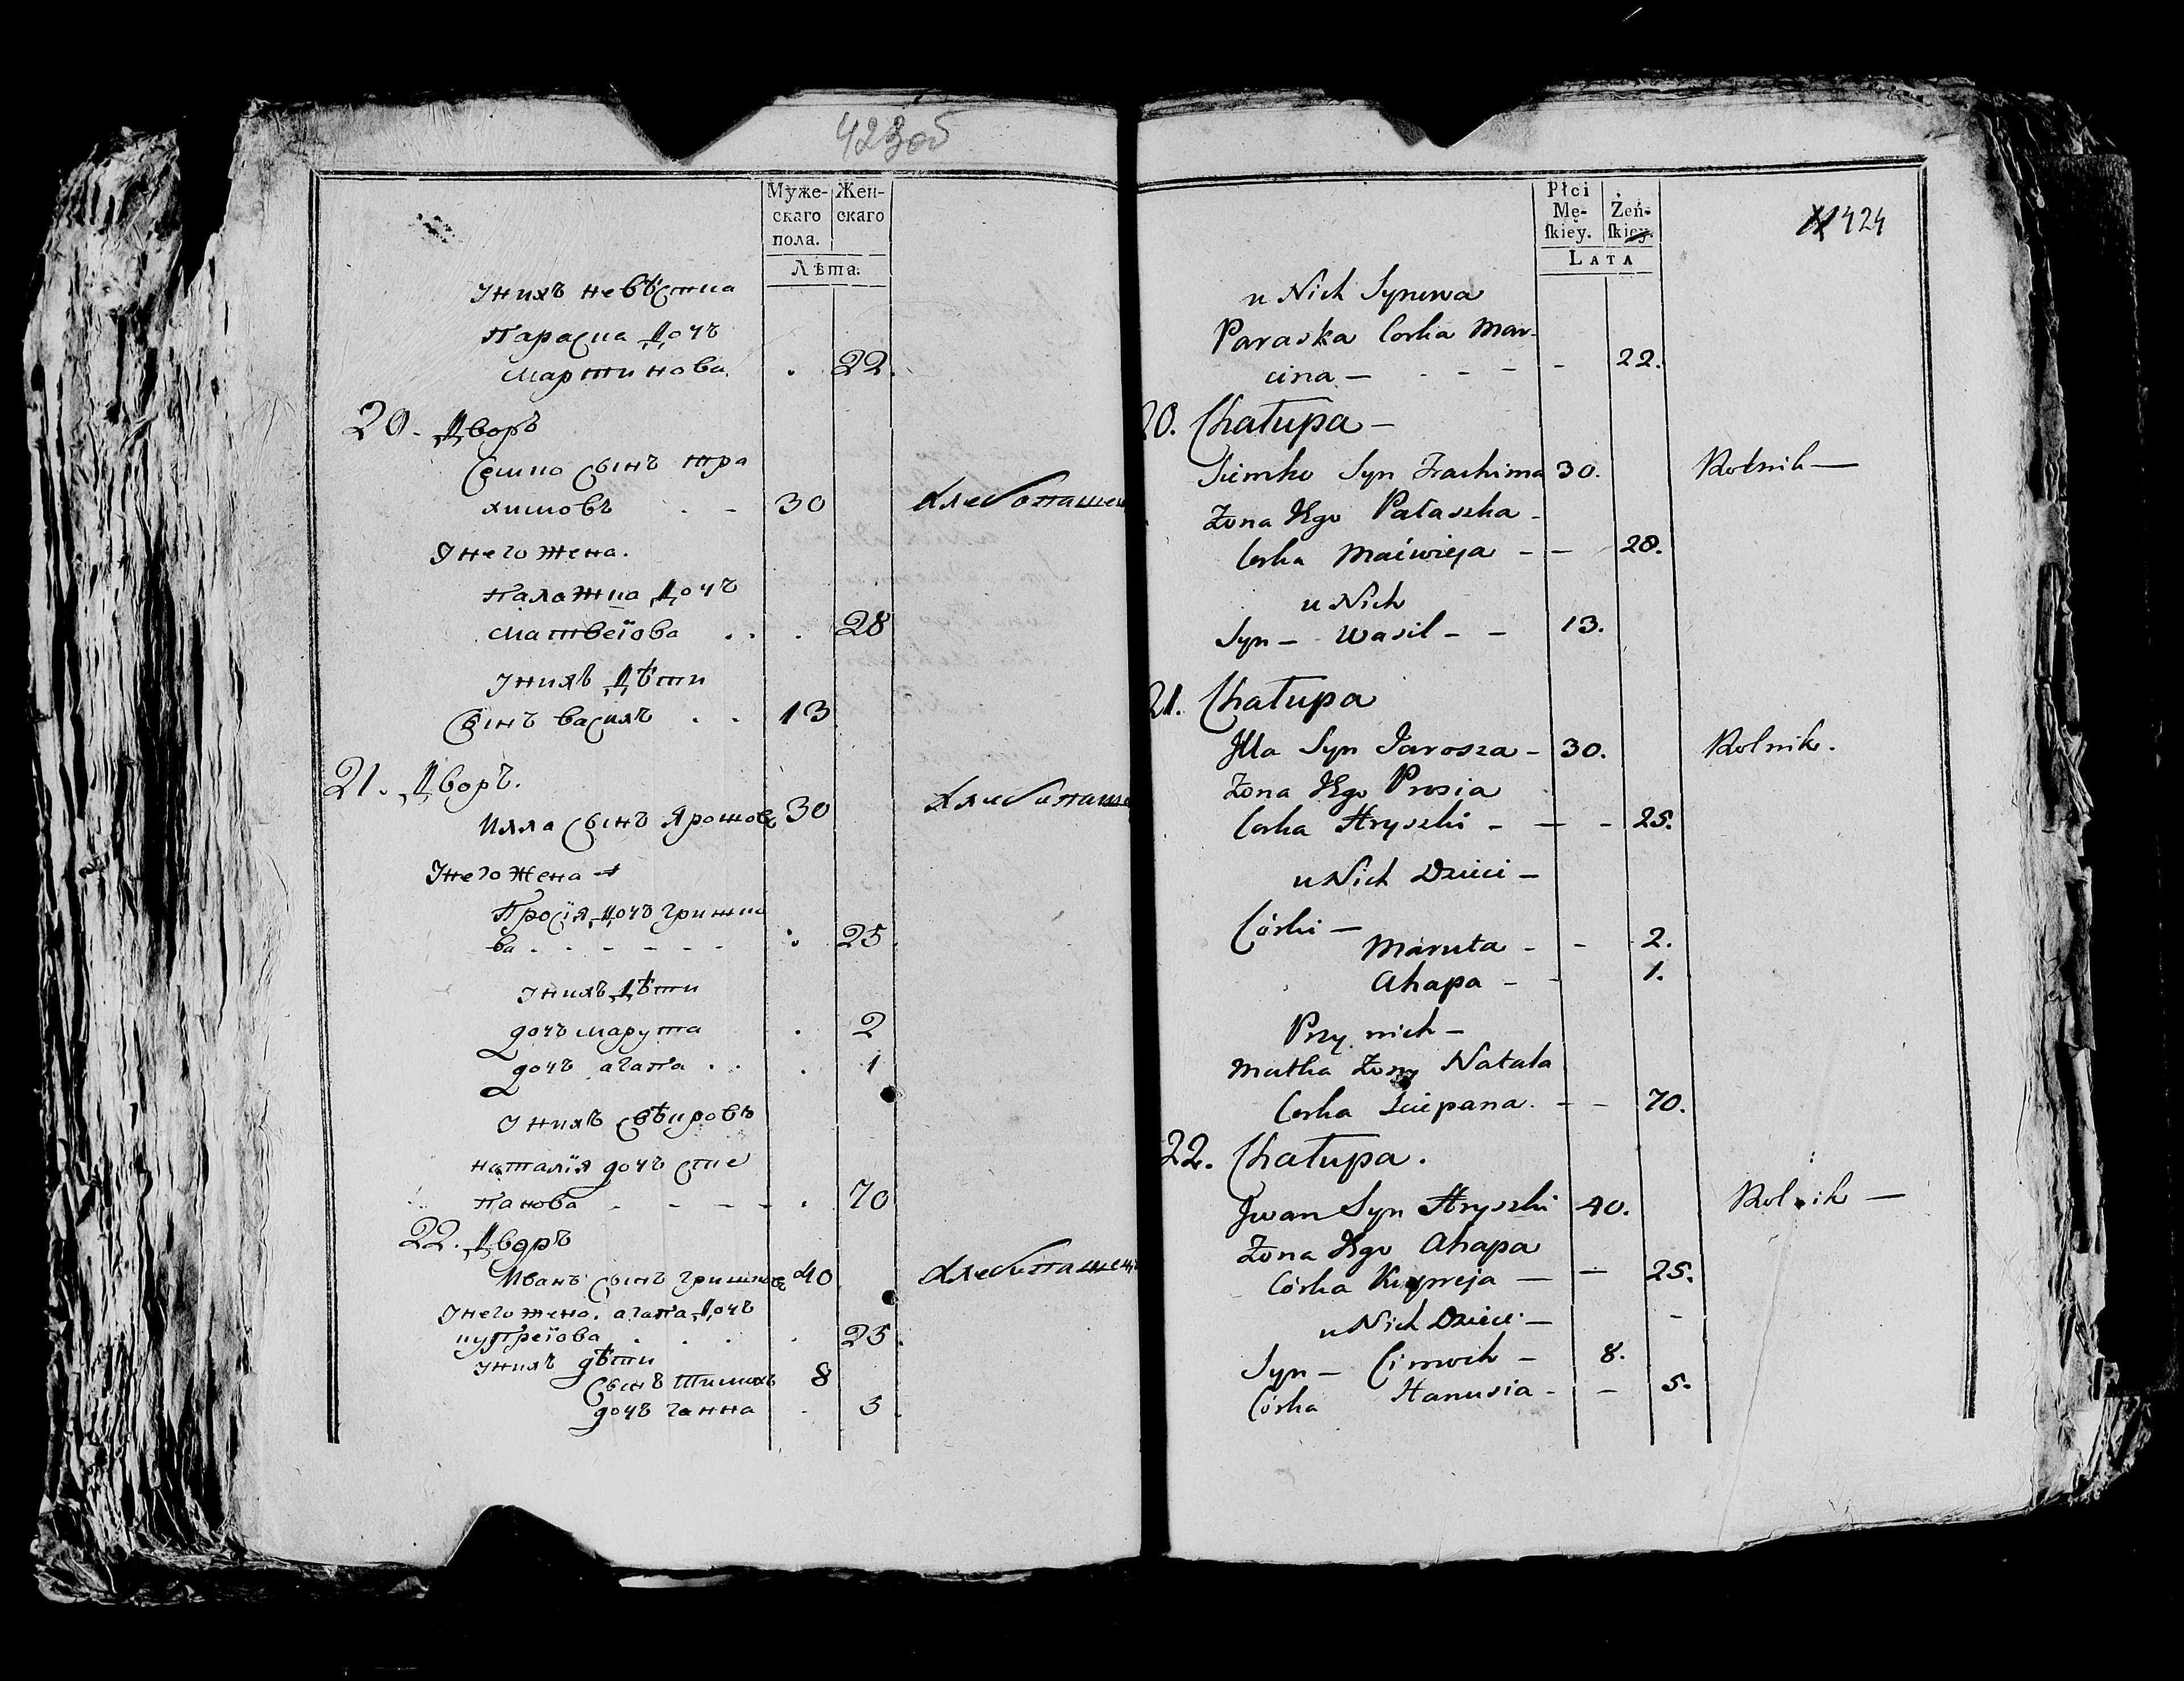 423об
Муже-
скаго
пола.
Жен-
скаго
Лѣта.
Унихъ невѣстка
Параска дочъ
Мартинова . 22.
20. Дворъ
Семко сынъ тра
химовъ . - 30 хлебопашец
Унего жена.
Палажка дочъ
Матвеіова . . . 28
Унихъ дѣти
Сынъ василъ . . 13
21. Дворъ.
Илла сынъ Ярошовъ 30
Унего жена
Просія дочъ гришко
ва . - - - - - 25.
Унихъ дѣти
дочъ марута . 2
дочъ агапа . . . 1
Унихъ
наталія дочъ сте
панова - - - - . 70
22. Дворъ
Иванъ сынъ гришковъ 40 хлебопашец
Унего жена. агапа дочъ
купреіова . . . . 25.
Унихъ дѣти
Сынъ Тимохъ 8
дочъ ганна . 5.
Płci
Mę-
ſkiey.
Żeń-
ſkiey.
LATA
424
u Nich Synowa
Paraska Corka Mar-
cina - . - - - 22.
20. Chałupa -
Siemko Syn Trachima 30. Rolnik -
Żona Jego Pałaszka -
Corka Maćwieja - - 28.
u Nich
Syn - Wasil - - 13.
21. Chałupa
Jlla Syn Jarosza - 30. Rolnik.
Żona Jego Prosia
Corka Hryszki - - - 25.
u Nich Dzieci -
Córki -
Maruta - - 2.
Ahapa - - 1.
Przy nich -
Matka Żony Natala
Corka Sciepana. - - 70.
22. Chałupa.
Jwan Syn Hryszki 40. Rolnik -
Żona Jego Ahapa
Córka Kupreja - - 25.
u Nich Dzieci - -
Syn - Cimoch - 8.
Córka Hanusia - - 5.